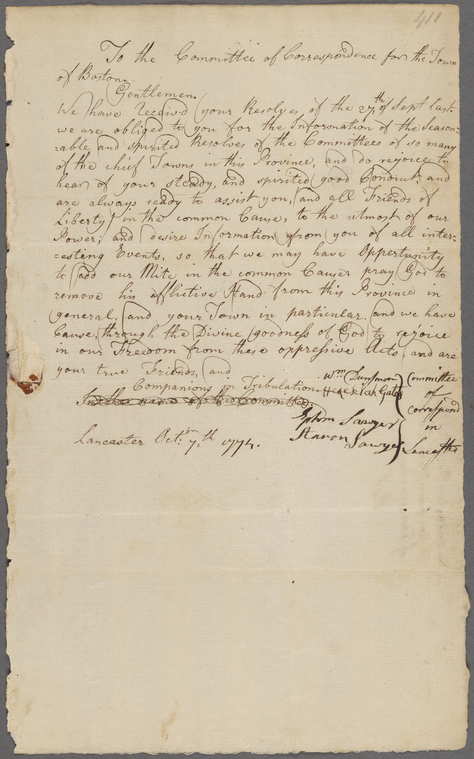 411
To the Committee of Correspondence for the Town
of Boston.
Gentlemen.
We have receivd your Resolves of the 27th of Sept last.
we are obliged to you for the Information of the season-
rable and spirited Resolves of the Committees of so many
of the chief Towns in this Province, and do rejoyce to
hear of your steady, and spirited good Conduct and
are always ready to assist you, and all Friends of
Liberty in the common Cause, to the utmost of our
Power, and desire Information from you of all inter-
esting Events, so that we may have Opportunity
to add our Mite in the common Cause pray God to
remove his afflictive Hand from this Province in
general, and your Town in particular, and we have
Cause through the Divine goodness of God to rejoice
in our Freedom from these oppressive Acts, and are
your true Friends, and
Companions in Tribulation.
In the name of the Committee
Wm Dunsmoor
Hezekiah Gates
Ephm Sawyer
Aaron Sawyer
Committee
of
correspond
in
Lancaster
Lancaster Octbr 7th 1774.